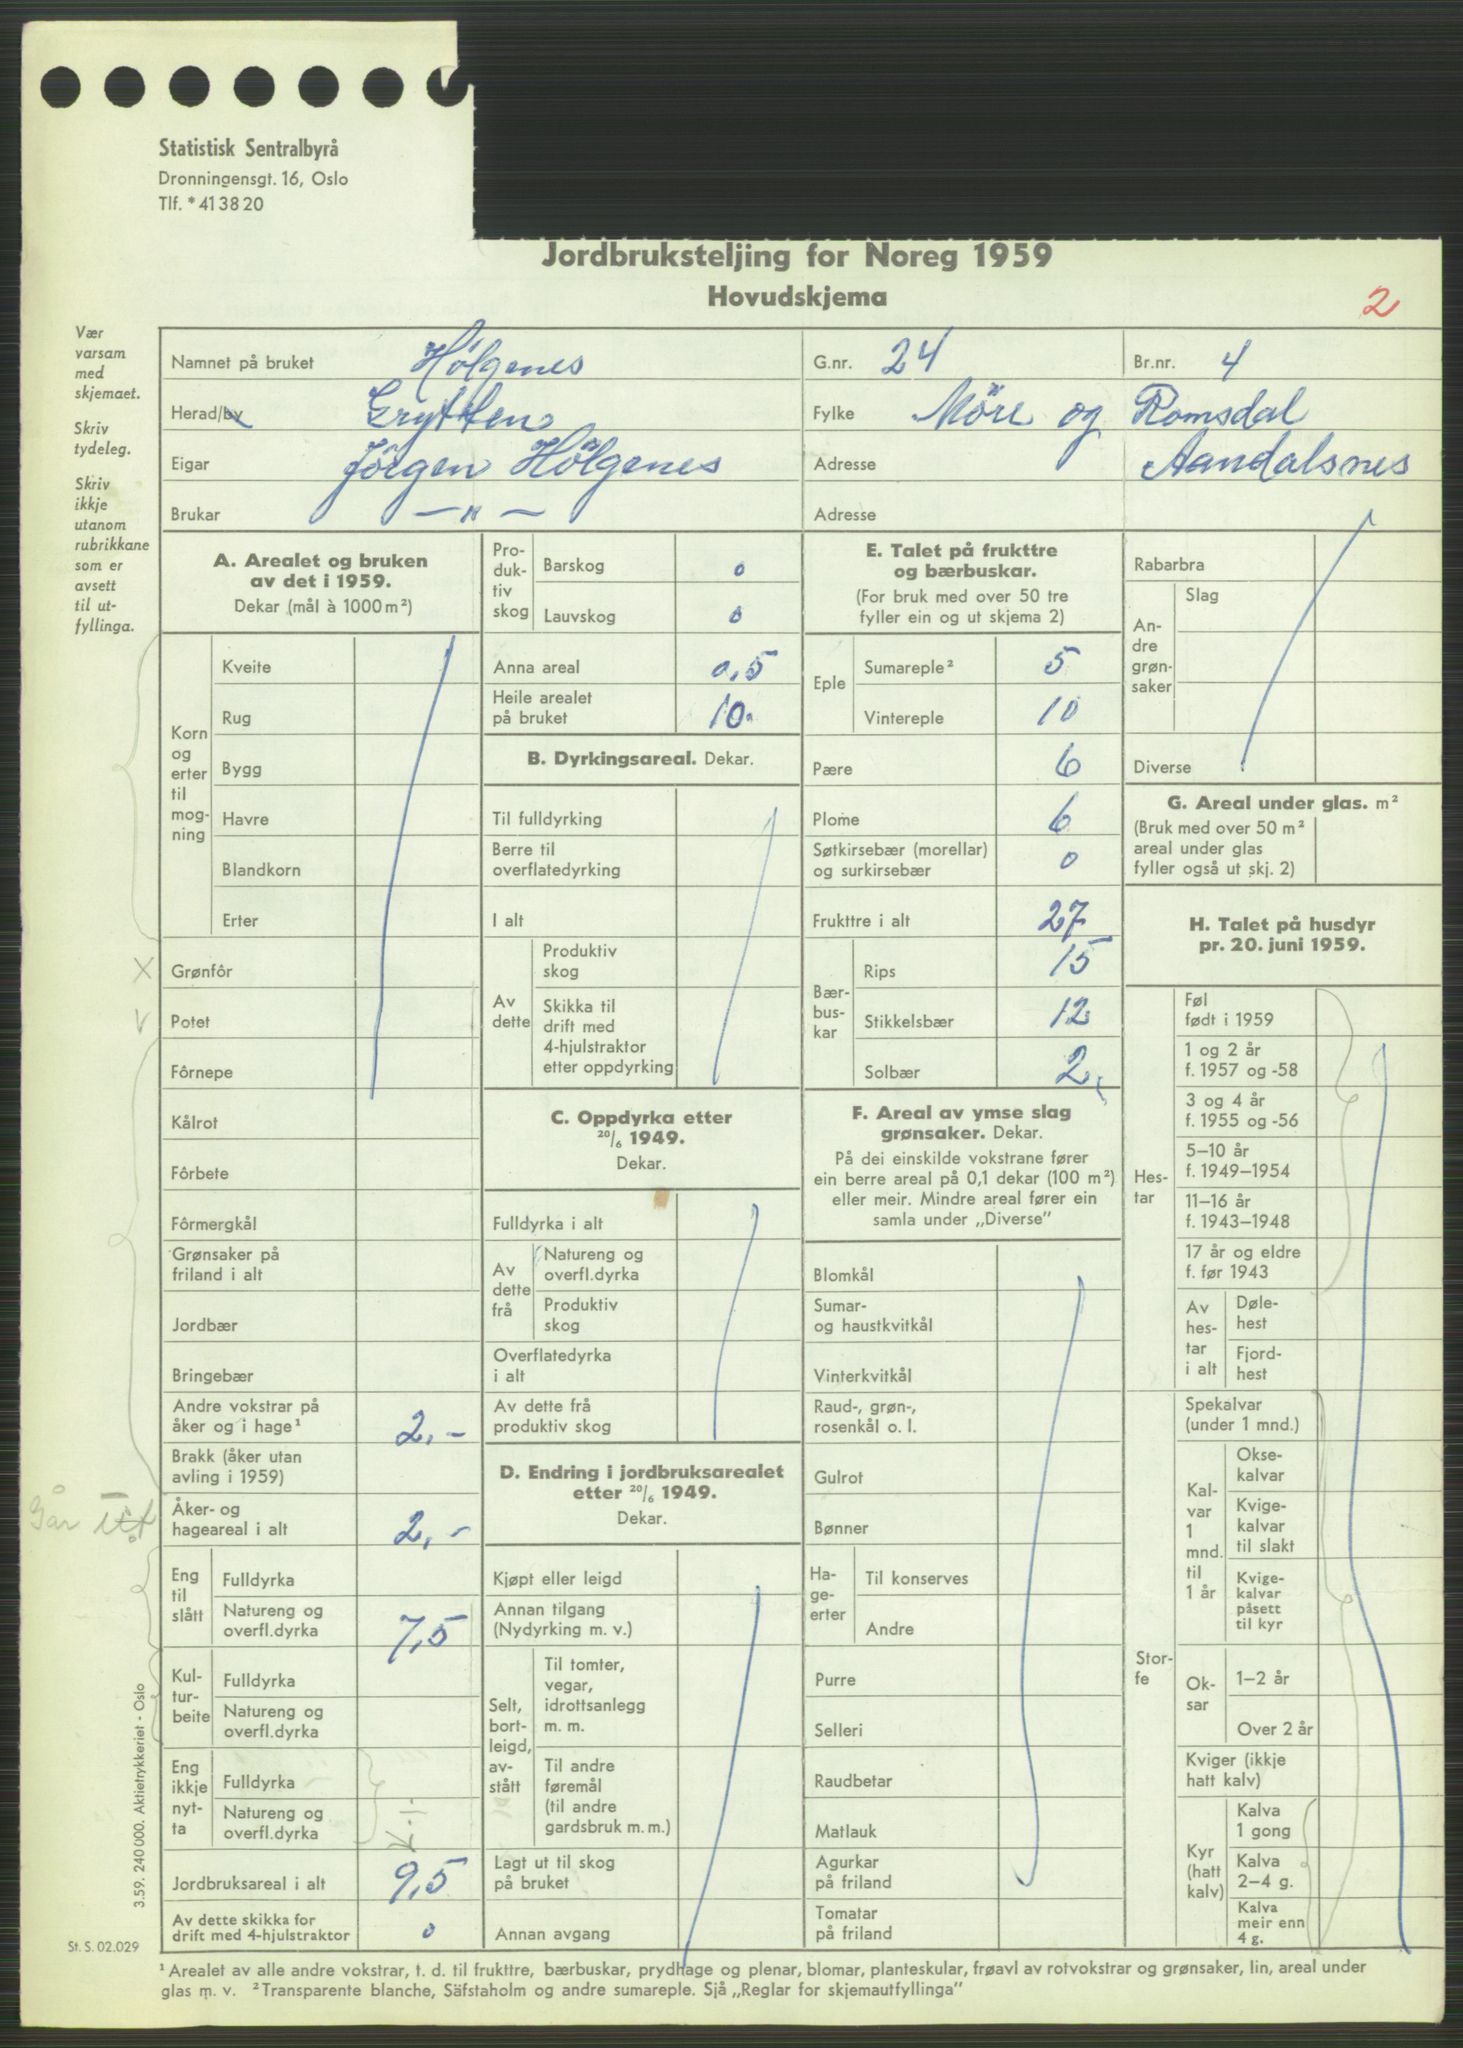 Statistisk Sentralbyrå
Dronningensgt. 16, Oslo
Tlf. * 41 38 20
Jordbruksteljing for Noreg 1959
Hovudskjema
2
Vær
varsam
med
skjemaet.
Skriv
tydeleg.
Skriv
ikkje
utanom
rubrikkane
som er
avsett
til ut-
fyllinga.
Namnet på bruket Hölgenes G.nr. 24 Br.nr. 4
Herad/by Grytten Fylke Möre og Romsdal
Eigar Jörgen Hölgenes Adresse Aandalsnes
Brukar —"— Adresse
A. Arealet og bruken
av det i 1959.
Dekar (mål à 1000 m²)
Korn
og
erter
til
mog-
ning
Kveite
Rug
Bygg
Havre
Blandkorn
Erter
X Grønfôr
v Potet
Fôrnepe
Kålrot
Fôrbete
Fôrmergkål
Grønsaker på
friland i alt
Jordbær
Bringebær
Andre vokstrar på
åker og i hage¹ 2,-
Brakk (åker utan
avling i 1959)
Går
Åker- og
hageareal i alt 2,-
Eng
til
slått
Fulldyrka
Natureng og
overfl.dyrka 7,5
Kul-
tur-
beite
Fulldyrka
Natureng og
overfl.dyrka
Eng
ikkje
nyt-
ta
Fulldyrka
Natureng og
overfl.dyrka
Jordbruksareal i alt 9,5
Av dette skikka for
drift med 4-hjulstraktor 0
Pro-
duk-
tiv
skog
Barskog 0
Lauvskog 0
Anna areal 0,5
Heile arealet
på bruket 10.
B. Dyrkingsareal. Dekar.
Til fulldyrking
Berre til
overflatedyrking
I alt
Av
dette
Produktiv
skog
Skikka til
drift med
4-hjulstraktor
etter oppdyrking
C. Oppdyrka etter
20/6 1949.
Dekar.
Fulldyrka i alt
Av
dette
frå
Natureng og
overfl.dyrka
Produktiv
skog
Overflatedyrka
i alt
Av dette frå
produktiv skog
D. Endring i jordbruksarealet
etter 20/6 1949.
Dekar.
Kjøpt eller leigd
Annan tilgang
(Nydyrking m. v.)
Selt,
bort-
leigd,
av-
stått
Til tomter,
vegar,
idrottsanlegg
m. m.
Til andre
føremål
(til andre
gardsbruk m. m.)
Lagt ut til skog
på bruket
Annan avgang
E. Talet på frukttre
og bærbuskar.
(For bruk med over 50 tre
fyller ein og ut skjema 2)
Eple
Sumareple² 5
Vintereple 10
Pære 6
Plome 6
Søtkirsebær (morellar)
og surkirsebær 0
Frukttre i alt 27
Bær-
bus-
kar
Rips 15
Stikkelsbær 12
Solbær 2
F. Areal av ymse slag
grønsaker. Dekar.
På dei einskilde vokstrane fører
ein berre areal på 0,1 dekar (100 m²)
eller meir. Mindre areal fører ein
samla under „Diverse”
Blomkål
Sumar-
og haustkvitkål
Vinterkvitkål
Raud-, grøn-,
rosenkål o. l.
Gulrot
Bønner
Ha-
ge-
erter
Til konserves
Andre
Purre
Selleri
Raudbetar
Matlauk
Agurkar
på friland
Tomatar
på friland
Rabarbra
An-
dre
grøn-
saker
Slag
Diverse
G. Areal under glas. m²
(Bruk med over 50 m²
areal under glas
fyller også ut skj. 2)
H. Talet på husdyr
pr. 20. juni 1959.
Hes-
tar
Føl
født i 1959
1 og 2 år
f. 1957 og -58
3 og 4 år
f. 1955 og -56
5–10 år
f. 1949–1954
11–16 år
f. 1943–1948
17 år og eldre
f. før 1943
Av
hes-
tar
i alt
Døle-
hest
Fjord-
hest
Stor-
fe
Spekalvar
(under 1 mnd.)
Kal-
var
1
mnd.
til
1 år
Okse-
kalvar
Kvige-
kalvar
til slakt
Kvige-
kalvar
påsett
til kyr
Ok-
sar
1–2 år
Over 2 år
Kviger (ikkje
hatt kalv)
Kyr
(hatt
kalv)
Kalva
1 gong
Kalva
2–4 g.
Kalva
meir enn
4 g.
3.59. 240 000. Aktietrykkeriet - Oslo
St. S. 02.029
¹ Arealet av alle andre vokstrar, t. d. til frukttre, bærbuskar, prydhage og plenar, blomar, planteskular, frøavl av rotvokstrar og grønsaker, lin, areal under
glas m. v. ² Transparente blanche, Säfstaholm og andre sumareple. Sjå „Reglar for skjemautfyllinga”